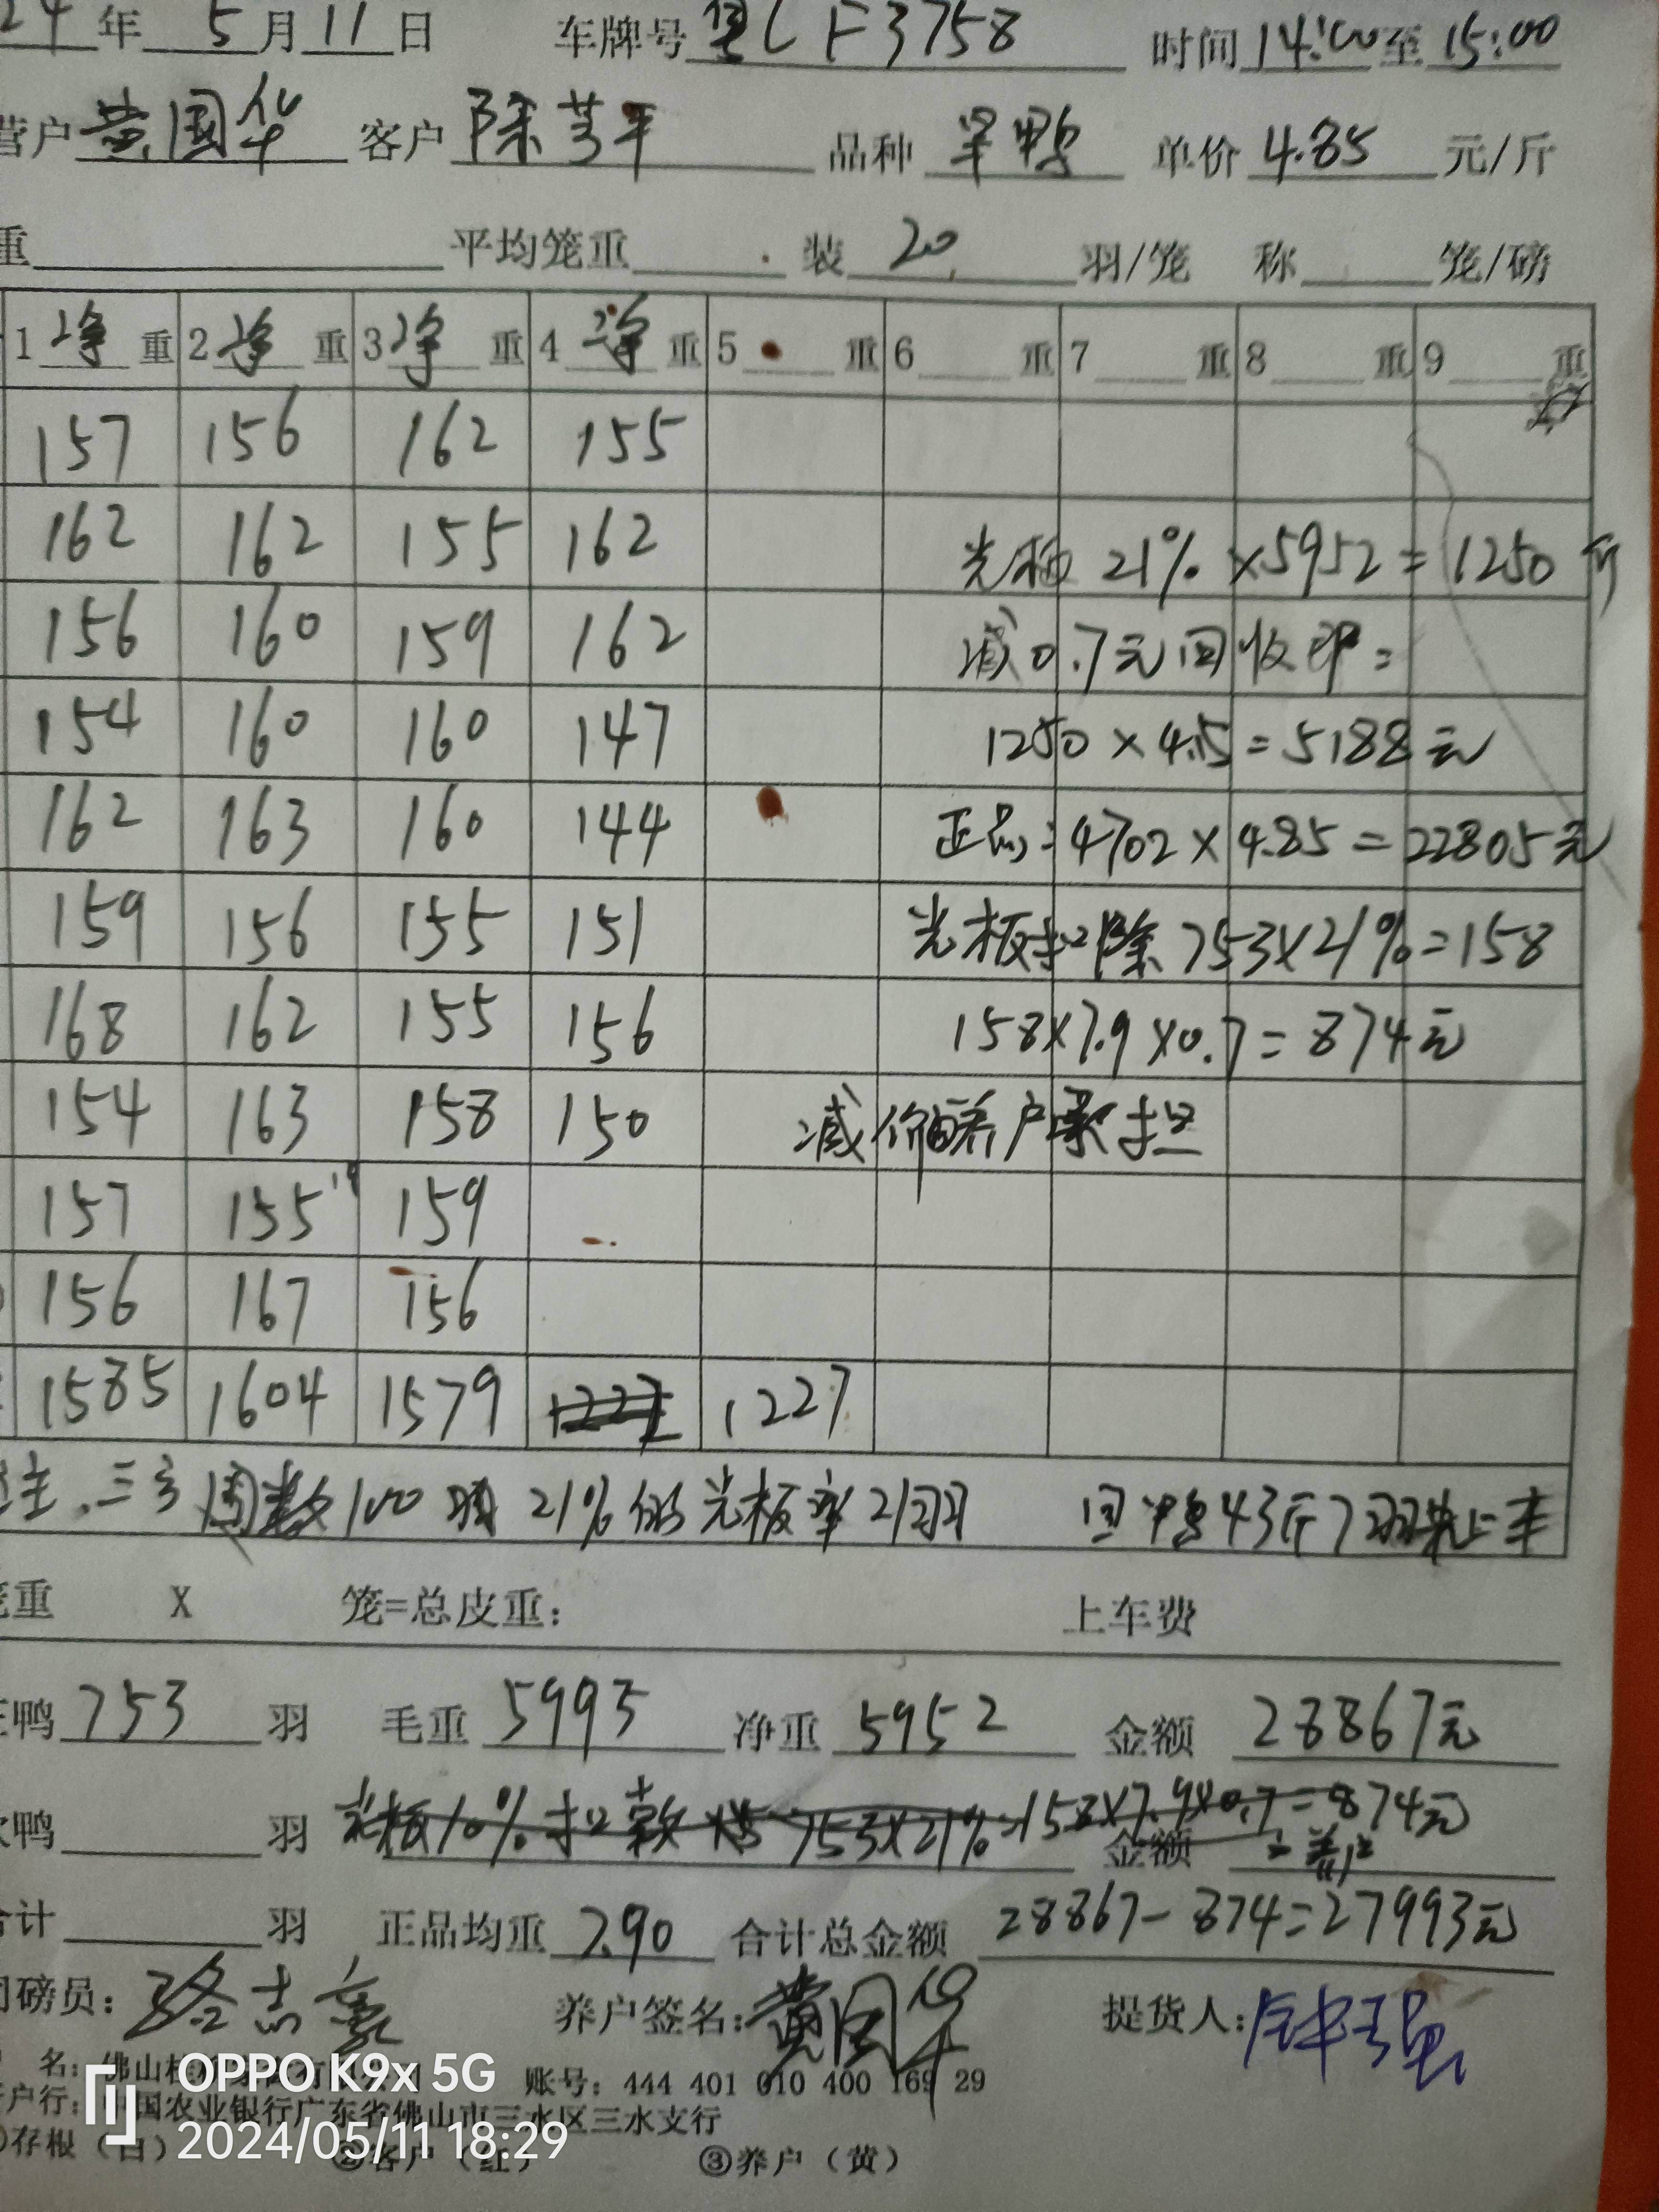 24年5月11日 车牌号 F3758 时间14:00至15:00
营户黄国华 客户 陈芳平 品种 单价4.85元/斤
重 平均笼重 装20羽/笼 称 笼/磅
1净重 2净重 3净重 4净重 5重 6重 7重 8重 9重
157 156 162 155
162 162 155 162 光板 21% ×5952=1250斤
156 160 159 162 减0.7元回收即=
154 160 160 147 1250×4.15=5188元
162 163 160 144 正品:4702×4.85=22805元
159 156 155 151 光板扣除753×21%=158
168 162 155 156 158×7.9×0.7=874元
154 163 158 150 减价由养户承担
157 155 159
156 167 156
1585 1604 1579 1227 1227
100羽 21% 光板率21羽 43斤7羽
重 X 笼=总皮重: 上车费
鸭753羽 毛重5995 净重5952 金额28867元
鸭 羽 光板10%扣款 753×21%=158×7.9×0.7=874元
金额
合计 羽 正品均重7.90 合计总金额28867-874=27993元
司磅员: 养户签名:黄国华 提货人:钟强
名:佛山 账号:444 401 010 400 169 29
户行:中国农业银行广东省佛山市三水区三水支行
存根(白) ②客户(红) ③养户(黄)
OPPO K9x 5G
2024/05/11 18:29